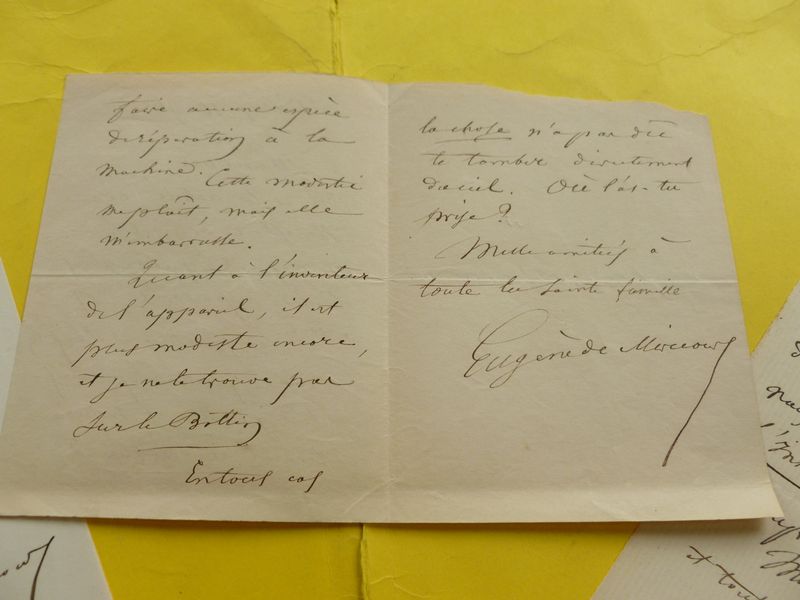 faire aucune espèce
de réparation à la
machine. Cette modestie
me plaît, mais elle
m'embarrasse.
Quant à l'inventeur
de l'appareil, il est
plus modeste encore,
et je ne le trouve pas
sur le Bottin
En tous cas
la chose n'a pas dû
te tomber directement
du ciel. Où l'as-tu
prise?
Mille amitiés à
toute la sainte famille
Eugène de Mirecourt
et tous